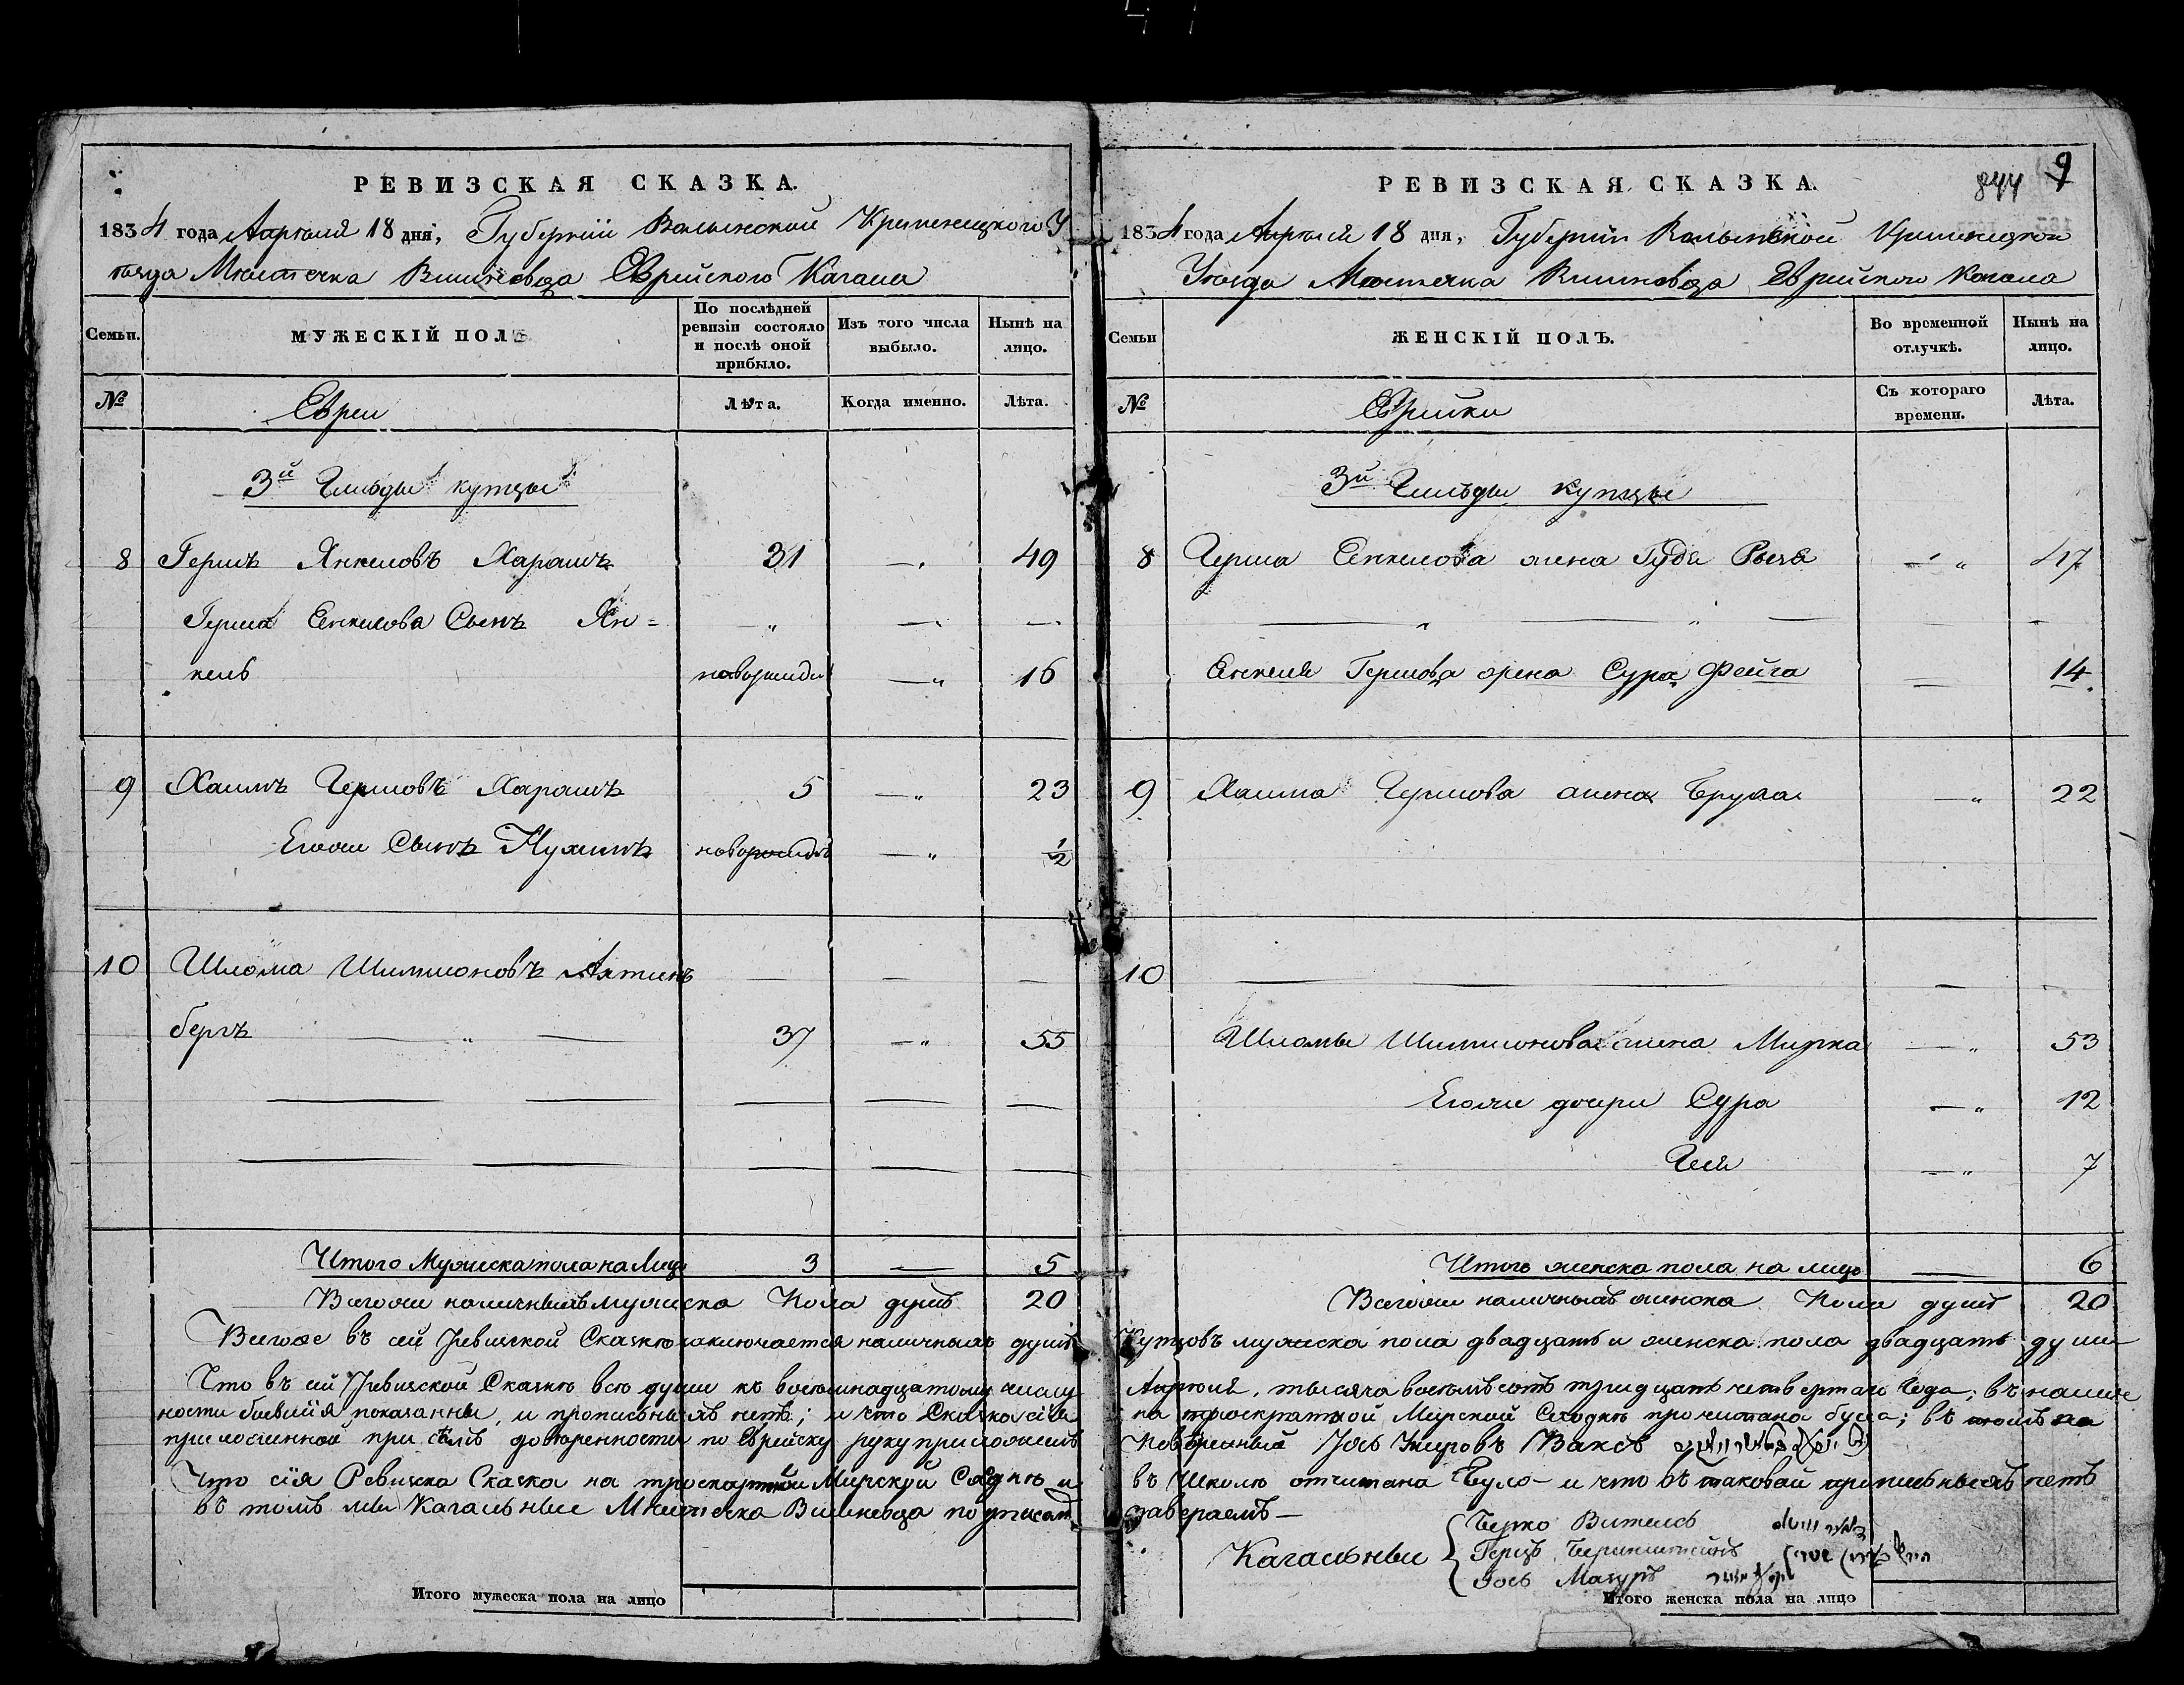 РЕВИЗСКАЯ СКАЗКА.
1834 года Апрѣля 18 дня, Губерніи Волынской Кременецкого У
ѣзда Мѣстечка Вишневца Еврейского Кагала
Семьи.
МУЖЕСКІЙ ПОЛЪ
По послѣдней ревизіи состояло и послѣ оной прибыло.
Изъ того числа выбыло.
Нынѣ на лицо.
№
Евреи
Лѣта.
Когда именно.
Лѣта.
3й Гильды купцы
8 Гершъ Янкеловъ Харашъ 31 — 49
Герша Енкелова Сынъ Ян=
кель новорожди — 16
9 Хаимъ Гершовъ Харашъ 5 — 23
Егоже Сынъ Нухимъ новорождъ — 1/2
10 Шлома Шимшоновъ Ахтин
бергъ 37 — 55
Итого Мужеска пола на Лицо 3 — 5
Всегоже наличныхъ мужеска Пола душъ 20
Всегоже въ сей Ревизской Сказкѣ заключается наличныхъ душъ
Что въ сей Ревизской Сказкѣ всѣ души къ восемнадцатому числу
ности бывшія показанны, и прописныхъ нетъ; и что Сказка сія
приложенной при семъ доверенности по Еврейску руку приложилъ
Что сія Ревизска Сказка на троекратной Мирской Сходкѣ и
въ томъ мы Кагальные Мѣстечка Вишневца подписом
Итого мужеска пола на лицо
РЕВИЗСКАЯ СКАЗКА.
844 9
1834 года Апрѣля 18 дня, Губерніи Волынской Кременецкого
Уѣзда Мѣстечка Вишневца Еврейского Кагала
Семьи
ЖЕНСКІЙ ПОЛЪ.
Во временной отлучкѣ.
Нынѣ на лицо.
№
Еврейки
Съ котораго времени.
Лѣта.
3й Гильды купцы
8 Герша Енкелова жена Рыся — 47
Енкеля Гершова жена Сура Фейга — 14
9 Хаима Гершова жена Бруха — 22
10
Шломы Шимшонова жена Мирка — 53
Егоже дочери Сура — 12
7
Итого женска пола на лицо — 6
Всегоже наличныхъ женска Пола душъ 20
Купцовъ мужеска пола двадцать и женска пола двадцать души
Апрѣля, тысяча восемьсотъ тридцать четвертаго Года; въ налич
на троекратной Мирской Сходкѣ прочитана была; въ томъ на
Поверенный Іось Ваксъ
въ Школѣ отчитана Было и что въ таковой прописныхъ нетъ
заверяемъ —
Кагальные
Берко Вительсъ
Герцъ Беринштейнъ
Іось Мазуръ
Итого женска пола на лицо